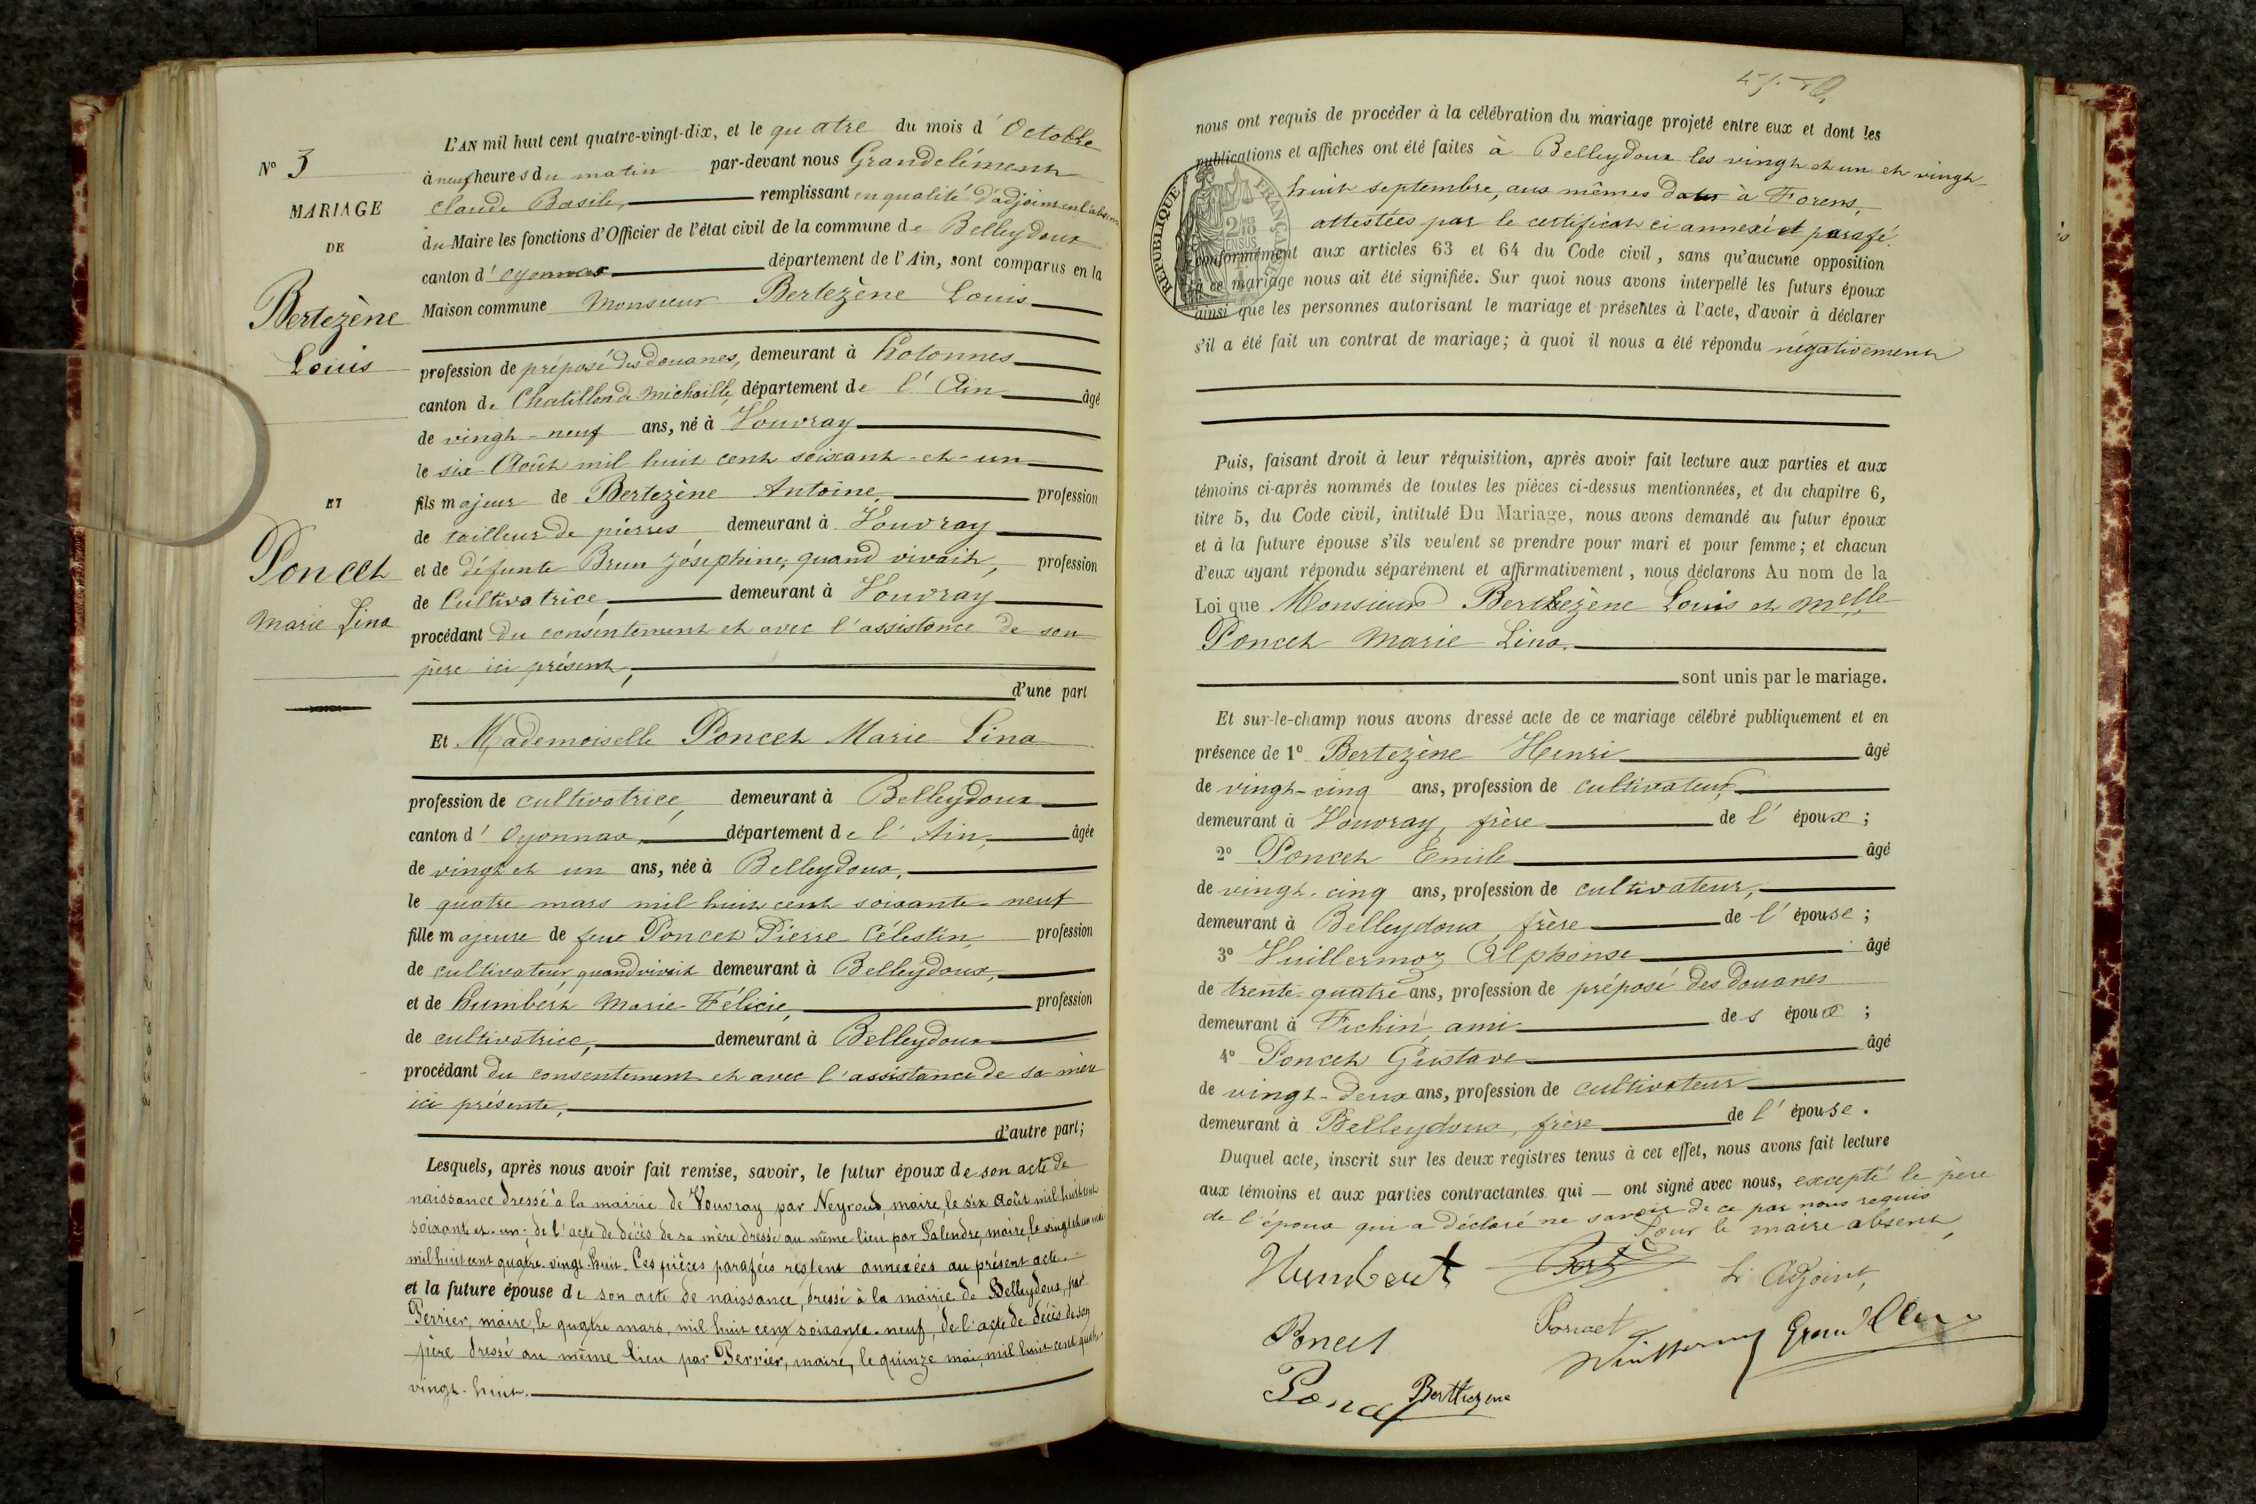 N° 3
MARIAGE
DE
Bertezène
Louis
ET
Poncet
Marie Lina
L'AN mil huit cent quatre-vingt-dix, et le quatre du mois d'Octobre
à neuf heures du matin par-devant nous Grandclément
Claude Basile, remplissant en qualité d'adjoint en l'absence
du Maire les fonctions d'Officier de l'état civil de la commune de Belleydoux
canton d'Oyonnax département de l'Ain, sont comparus en la
Maison commune Monsieur Bertezène Louis
profession de préposé des douanes, demeurant à hotonnes
canton de Chatillon de Michaille, département de l'Ain âgé
de vingt-neuf ans, né à Vouvray
le six Août mil huit cent soixant-et-un
fils majeur de Bertezène Antoine, profession
de tailleur de pierres demeurant à Vouvray
et de défunte Brun Joséphine, quand vivait, profession
de Cultivatrice, demeurant à Vouvray
procédant du consentement et avec l'assistance de son
père ici présent,
d'une part
Et Mademoiselle Poncet Marie Lina
profession de cultivatrice, demeurant à Belleydoux
canton d'Oyonnax, département de l'Ain, âgée
de vingt et un ans, née à Belleydoux,
le quatre mars mil huit cent soixante-neuf
fille majeure de feu Poncet Pierre Célestin, profession
de cultivateur, quand vivait demeurant à Belleydoux,
et de humbert Marie-Félicie, profession
de cultivatrice, demeurant à Belleydoux
procédant du consentement et avec l'assistance de sa mère
ici présente,
d'autre part;
Lesquels, après nous avoir fait remise, savoir, le futur époux de son acte de
naissance dressé à la mairie de Vouvray par Neyroud, maire, le six Août mil huit cent
soixant-et-un; de l'acte de décès de sa mère dressé au même lieu par Salendre, maire, le vingt et un
mil huit cent quatre-vingt-huit. Ces pièces parafées restent annexées au présent acte.
et la future épouse de son acte de naissance, dressé à la mairie de Belleydoux, par
Perrier, maire, le quatre mars, mil huit cent soixante-neuf, de l'acte de décès de son
père dressé au même lieu par Perrier, maire, le quinze mai, mil huit cent quatre-
vingt-huit.
nous ont requis de procéder à la célébration du mariage projeté entre eux et dont les
publications et affiches ont été faites à Belleydoux les vingt et un et vingt-
huit septembre, aux mêmes dates à Forens,
attestées par le certificat ci annexé et parafé.
conformément aux articles 63 et 64 du Code civil, sans qu'aucune opposition
à ce mariage nous ait été signifiée. Sur quoi nous avons interpellé les futurs époux
ainsi que les personnes autorisant le mariage et présentes à l'acte, d'avoir à déclarer
s'il a été fait un contrat de mariage; à quoi il nous a été répondu négativement
RÉPUBLIQUE FRANÇAISE
Puis, faisant droit à leur réquisition, après avoir fait lecture aux parties et aux
témoins ci-après nommés de toutes les pièces ci-dessus mentionnées, et du chapitre 6,
titre 5, du Code civil, intitulé Du Mariage, nous avons demandé au futur époux
et à la future épouse s'ils veulent se prendre pour mari et pour femme; et chacun
d'eux ayant répondu séparément et affirmativement, nous déclarons Au nom de la
Loi que Monsieur Bertezène Louis et Melle
Poncet Marie Lina.
sont unis par le mariage.
Et sur-le-champ nous avons dressé acte de ce mariage célébré publiquement et en
présence de 1° Bertezène Henri âgé
de vingt-cinq ans, profession de cultivateur,
demeurant à Vouvray, frère de l'époux;
2° Poncet Emile âgé
de vingt-cinq ans, profession de cultivateur,
demeurant à Belleydoux, frère de l'épouse;
3° Vuillermoz Alphonse âgé
de trente-quatre ans, profession de préposé des douanes
demeurant à Fichin, ami des époux;
4° Poncet Gustave âgé
de vingt-deux ans, profession de cultivateur
demeurant à Belleydoux, frère de l'épouse.
Duquel acte, inscrit sur les deux registres tenus à cet effet, nous avons fait lecture
aux témoins et aux parties contractantes qui — ont signé avec nous, excepté le père
de l'époux qui a déclaré ne savoir de ce par nous requis
Pour le maire absent,
L'Adjoint,
Humbert
Poncet
Poncet
Poncet
Berthezene